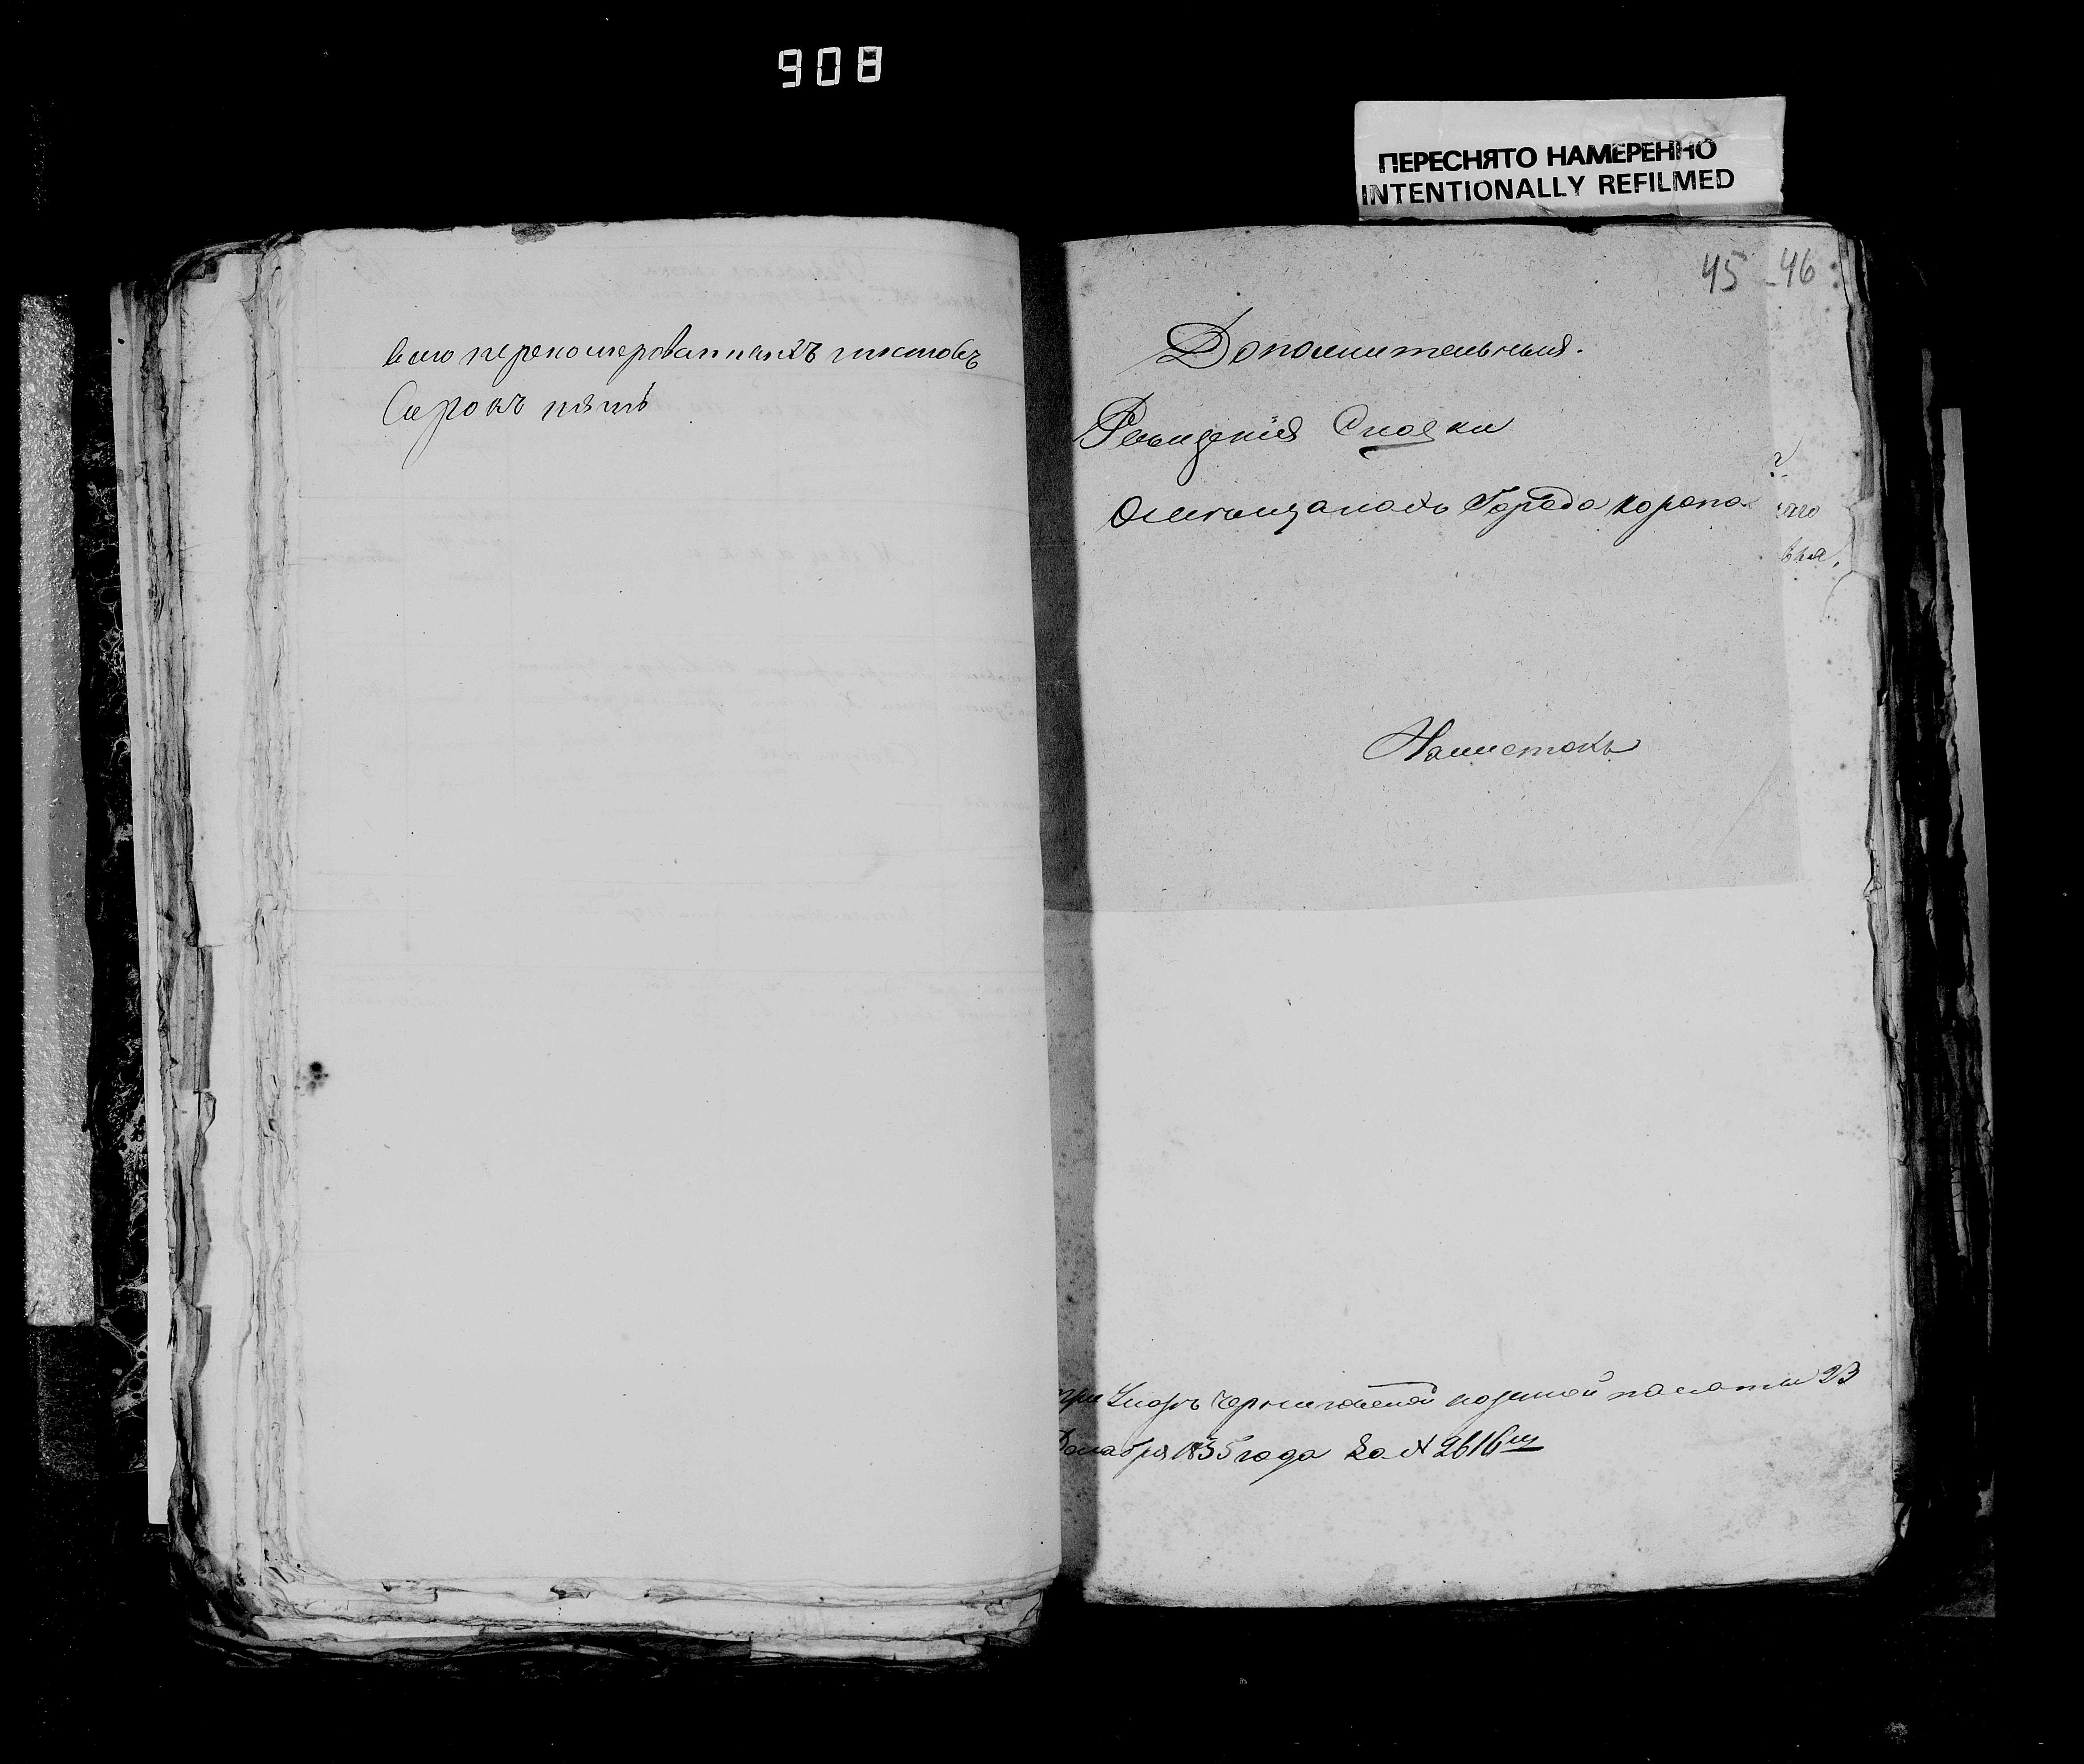 908
ПЕРЕСНЯТО НАМЕРЕННО
INTENTIONALLY REFILMED
всего переномерованныхъ листовъ
Сорокъ пять
45-46
Дополнительныя.
Ревизскія Сказки
Омещанахъ Города коропа
Налистахъ
при Указѣ Черниговской казенной палаты 23
Декабря 1835 года За № 2616мъ